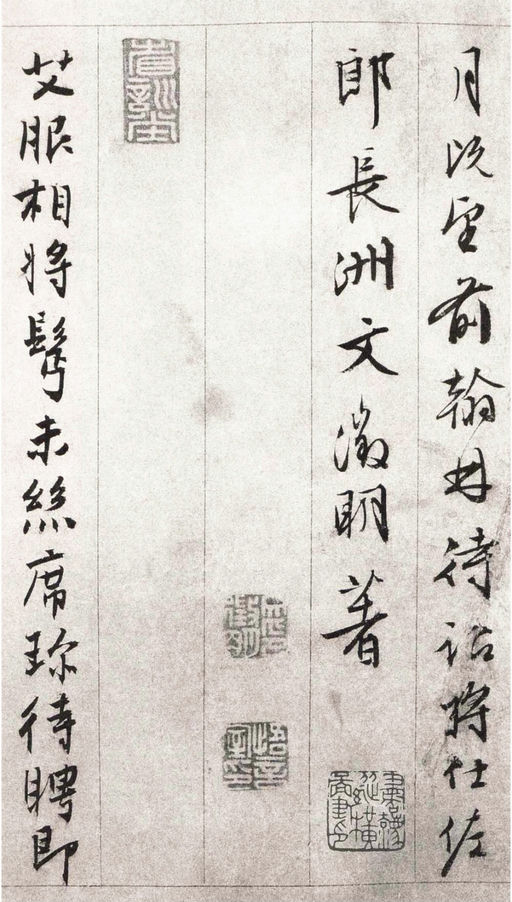 月既望前翰林待詔將仕佐
郎長洲文徵明著
悟言室印
艾服相將鬢未絲席珍待聘即